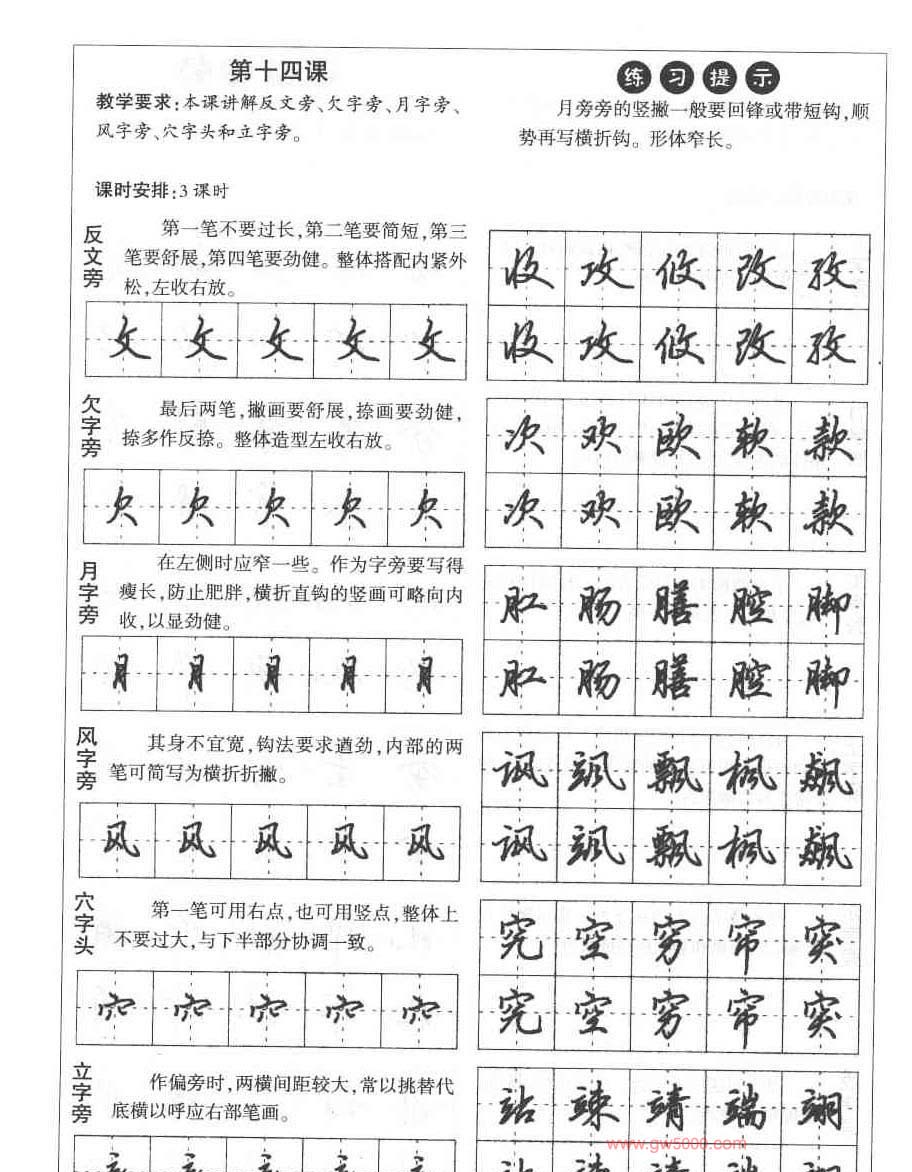 第十四课
教学要求:本课讲解反文旁、欠字旁、月字旁、
风字旁、穴字头和立字旁。
课时安排:3课时
练习提示
月旁旁的竖撇一般要回锋或带短钩,顺
势再写横折钩。形体窄长。
反文旁
第一笔不要过长,第二笔要简短,第三
笔要舒展,第四笔要劲健。整体搭配内紧外
松,左收右放。
攵攵攵攵攵
收攻攸改孜
收攻攸改孜
欠字旁
最后两笔,撇画要舒展,捺画要劲健,
捺多作反捺。整体造型左收右放。
欠欠欠欠欠
次欢欧软款
次欢欧软款
月字旁
在左侧时应窄一些。作为字旁要写得
瘦长,防止肥胖,横折直钩的竖画可略向内
收,以显劲健。
月月月月月
肛肠膳腔脚
肛肠膳腔脚
风字旁
其身不宜宽,钩法要求遒劲,内部的两
笔可简写为横折折撇。
风风风风风
讽飒飘枫飙
讽飒飘枫飙
穴字头
第一笔可用右点,也可用竖点,整体上
不要过大,与下半部分协调一致。
穴穴穴穴穴
究空穷帘突
究空穷帘突
立字旁
作偏旁时,两横间距较大,常以挑替代
底横以呼应右部笔画。
站竦靖端翊
www.gw5000.com